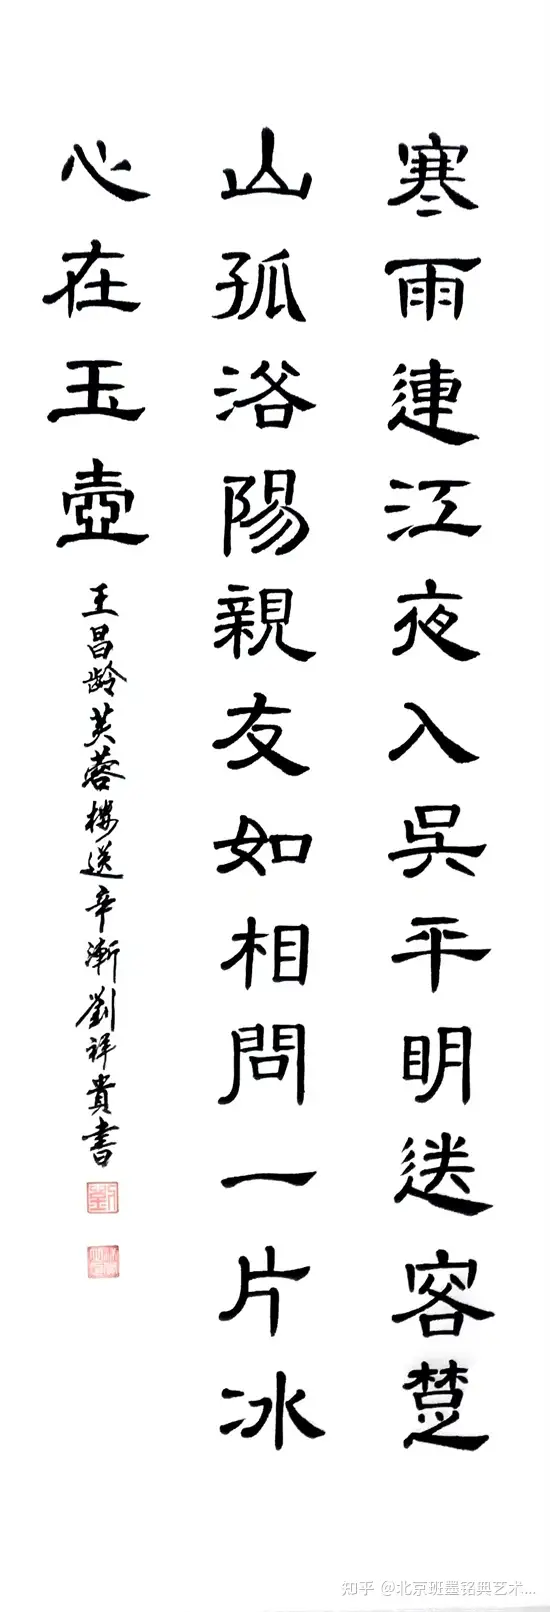 寒雨連江夜入吳平明送客楚
山孤洛陽親友如相問一片冰
心在玉壺
王昌龄芙蓉樓送辛漸劉祥貴書
知乎 @北京班墨铭典艺术...